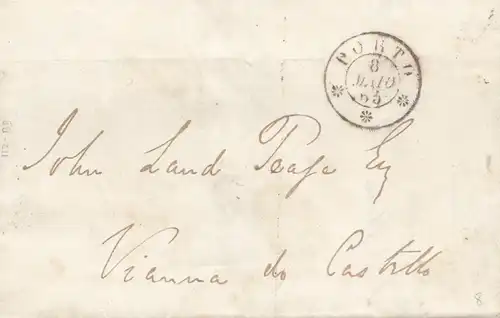 PORTO
8
MAIO
John Land Teage Esq
Vianna do Castello
8